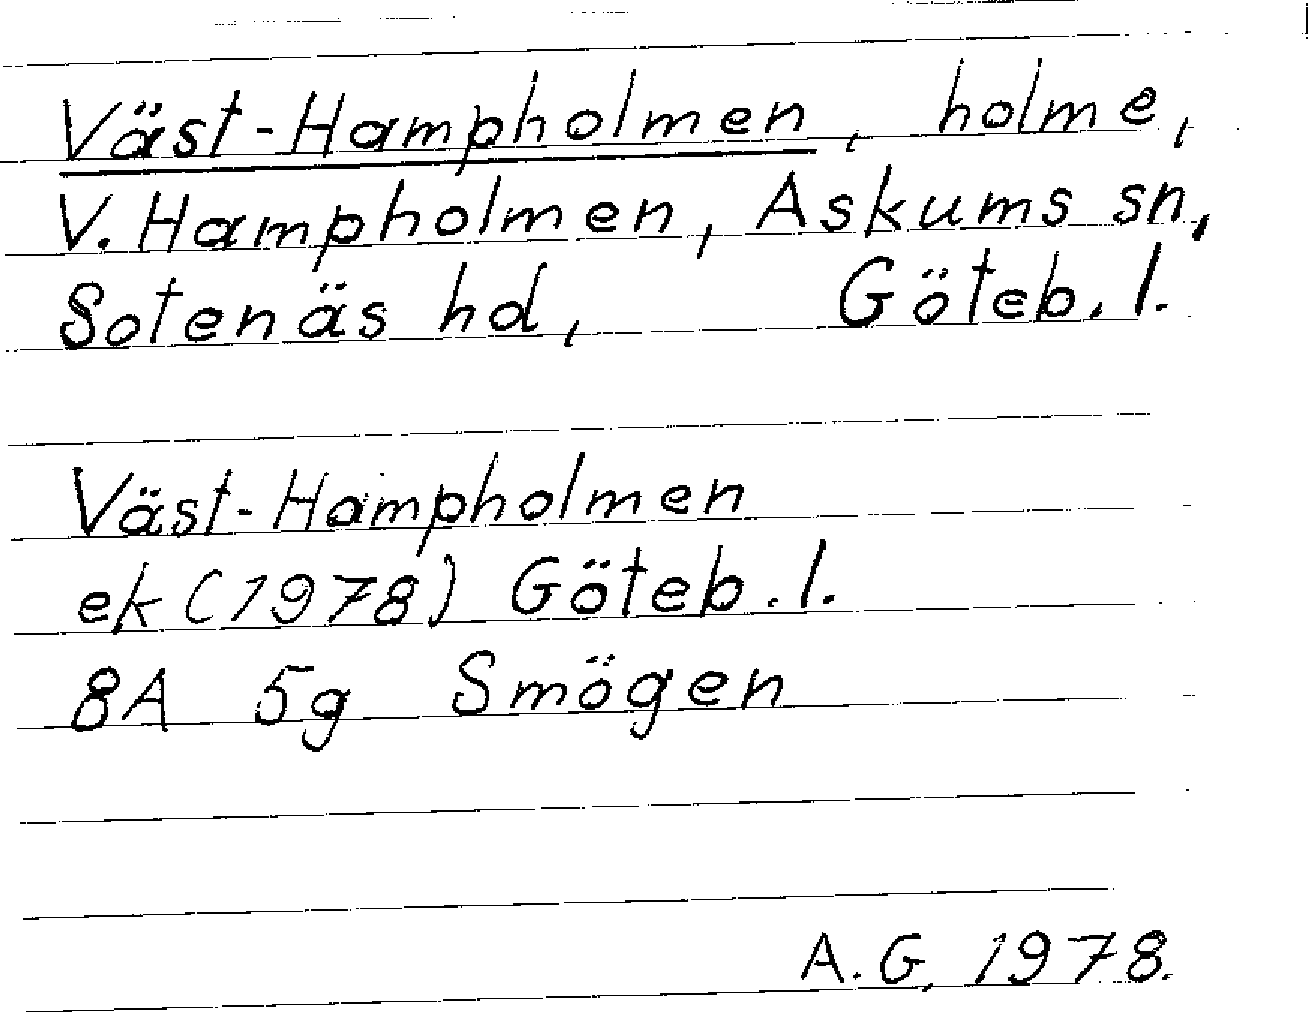 Väst-Hampholmen, holme,
V. Hampholmen, Askums sn,
Sotenäs hd, Göteb. l.
Väst-Hampholmen
ek (1978) Göteb. l.
8A 5g Smögen
A. G, 1978.